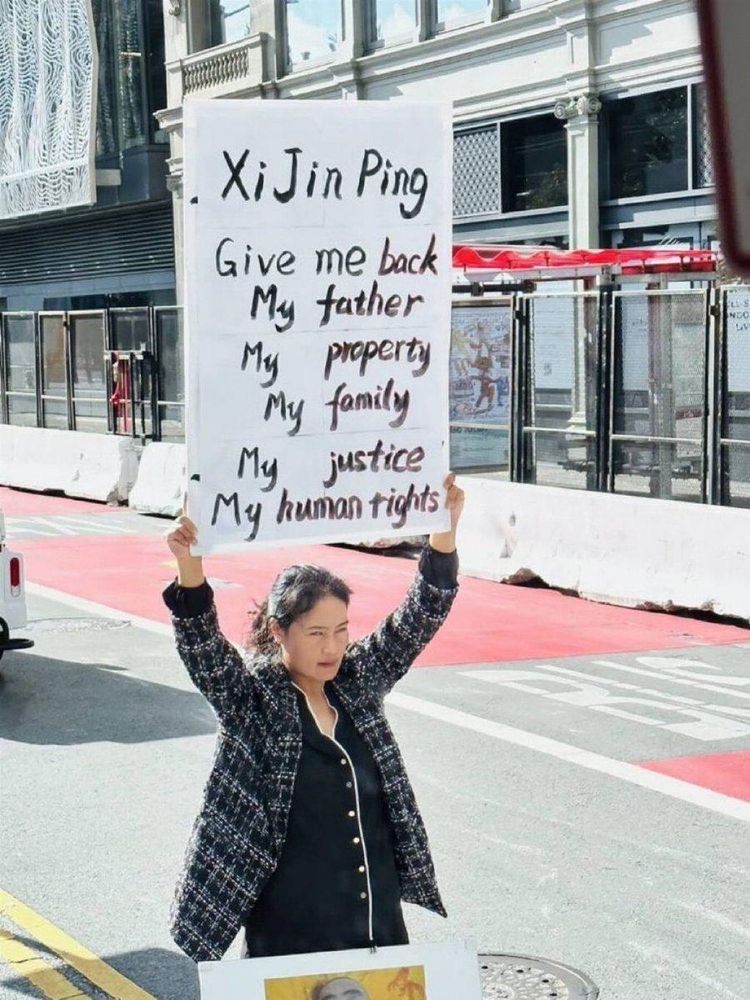 Xi Jin Ping
Give me back
My father
My property
My family
My justice
My human rights